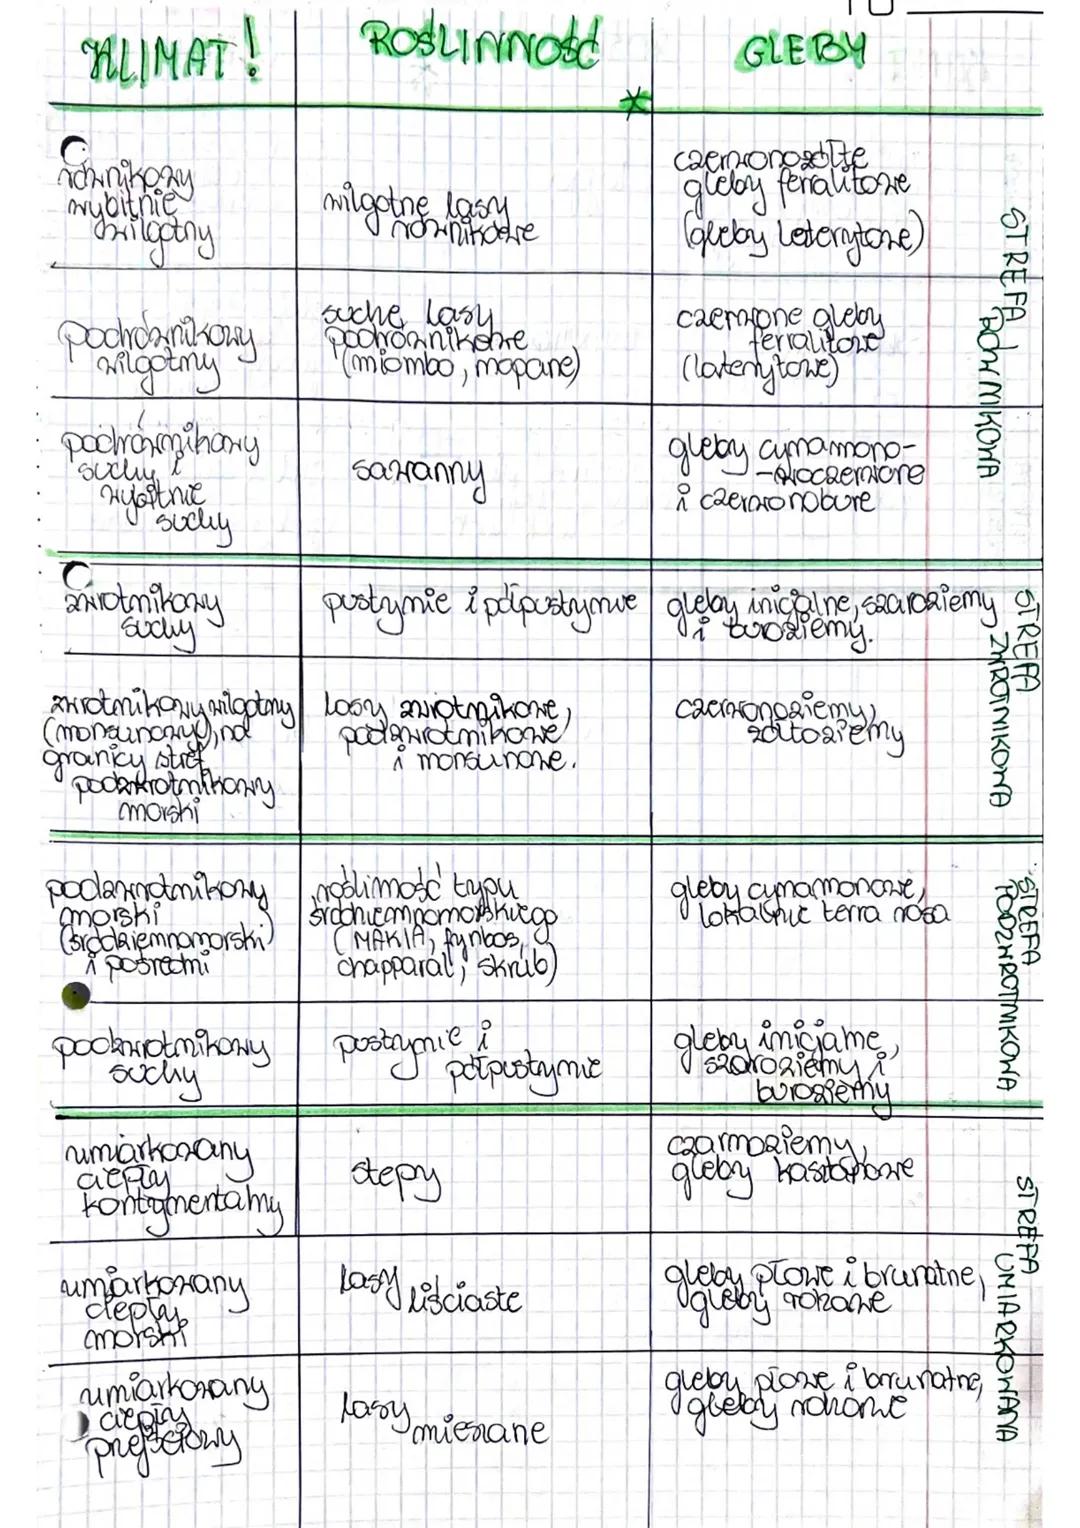 KLIMAT!
ROŚLINNOŚĆ
GLEBY
*
równikowy
wybitnie
wilgotny
wilgotne lasy
równikowe
czerwonożółte
gleby ferralitowe
(gleby leterytowe)
STREFA
RÓWNIKOWA
podrównikowy
wilgotny
suche lasy
podrównikowe
(miombo, mopane)
czerwone gleby
ferralitowe
(laterytowe)
podrównikowy
suchy i
wybitnie
suchy
sawanny
gleby cynamono-
-woczerwone
i czerwonobure
zwrotnikowy
suchy
pustynie i półpustynie
gleby inicjalne, szaroziemy
i buroziemy.
STREFA
ZWROTNIKOWA
zwrotnikowy wilgotny
(monsunowy), na
granicy stref
podzwrotnikowy
morski
lasy zwrotnikowe,
podzwrotnikowe
i monsunowe.
czerwonoziemy,
żółtoziemy
podzwrotnikowy
morski
(śródziemnomorski)
i pośredni
roślinność typu
śródziemnomorskiego
(MAKIA, fynbos,
chapparal, skrub)
gleby cynamonowe,
lokalnie terra rosa
STREFA
PODZWROTNIKOWA
podzwrotnikowy
suchy
pustynie i
półpustynie
gleby inicjalne,
szaroziemy i
buroziemy
umiarkowany
ciepły
kontynentalny
stepy
czarnoziemy,
gleby kasztanowe
STREFA
UMIARKOWANA
umiarkowany
ciepły
morski
lasy
liściaste
gleby płowe i brunatne,
gleby rdzawe
umiarkowany
ciepły
przejściowy
lasy
mieszane
gleby płowe i brunatne,
gleby rdzawe